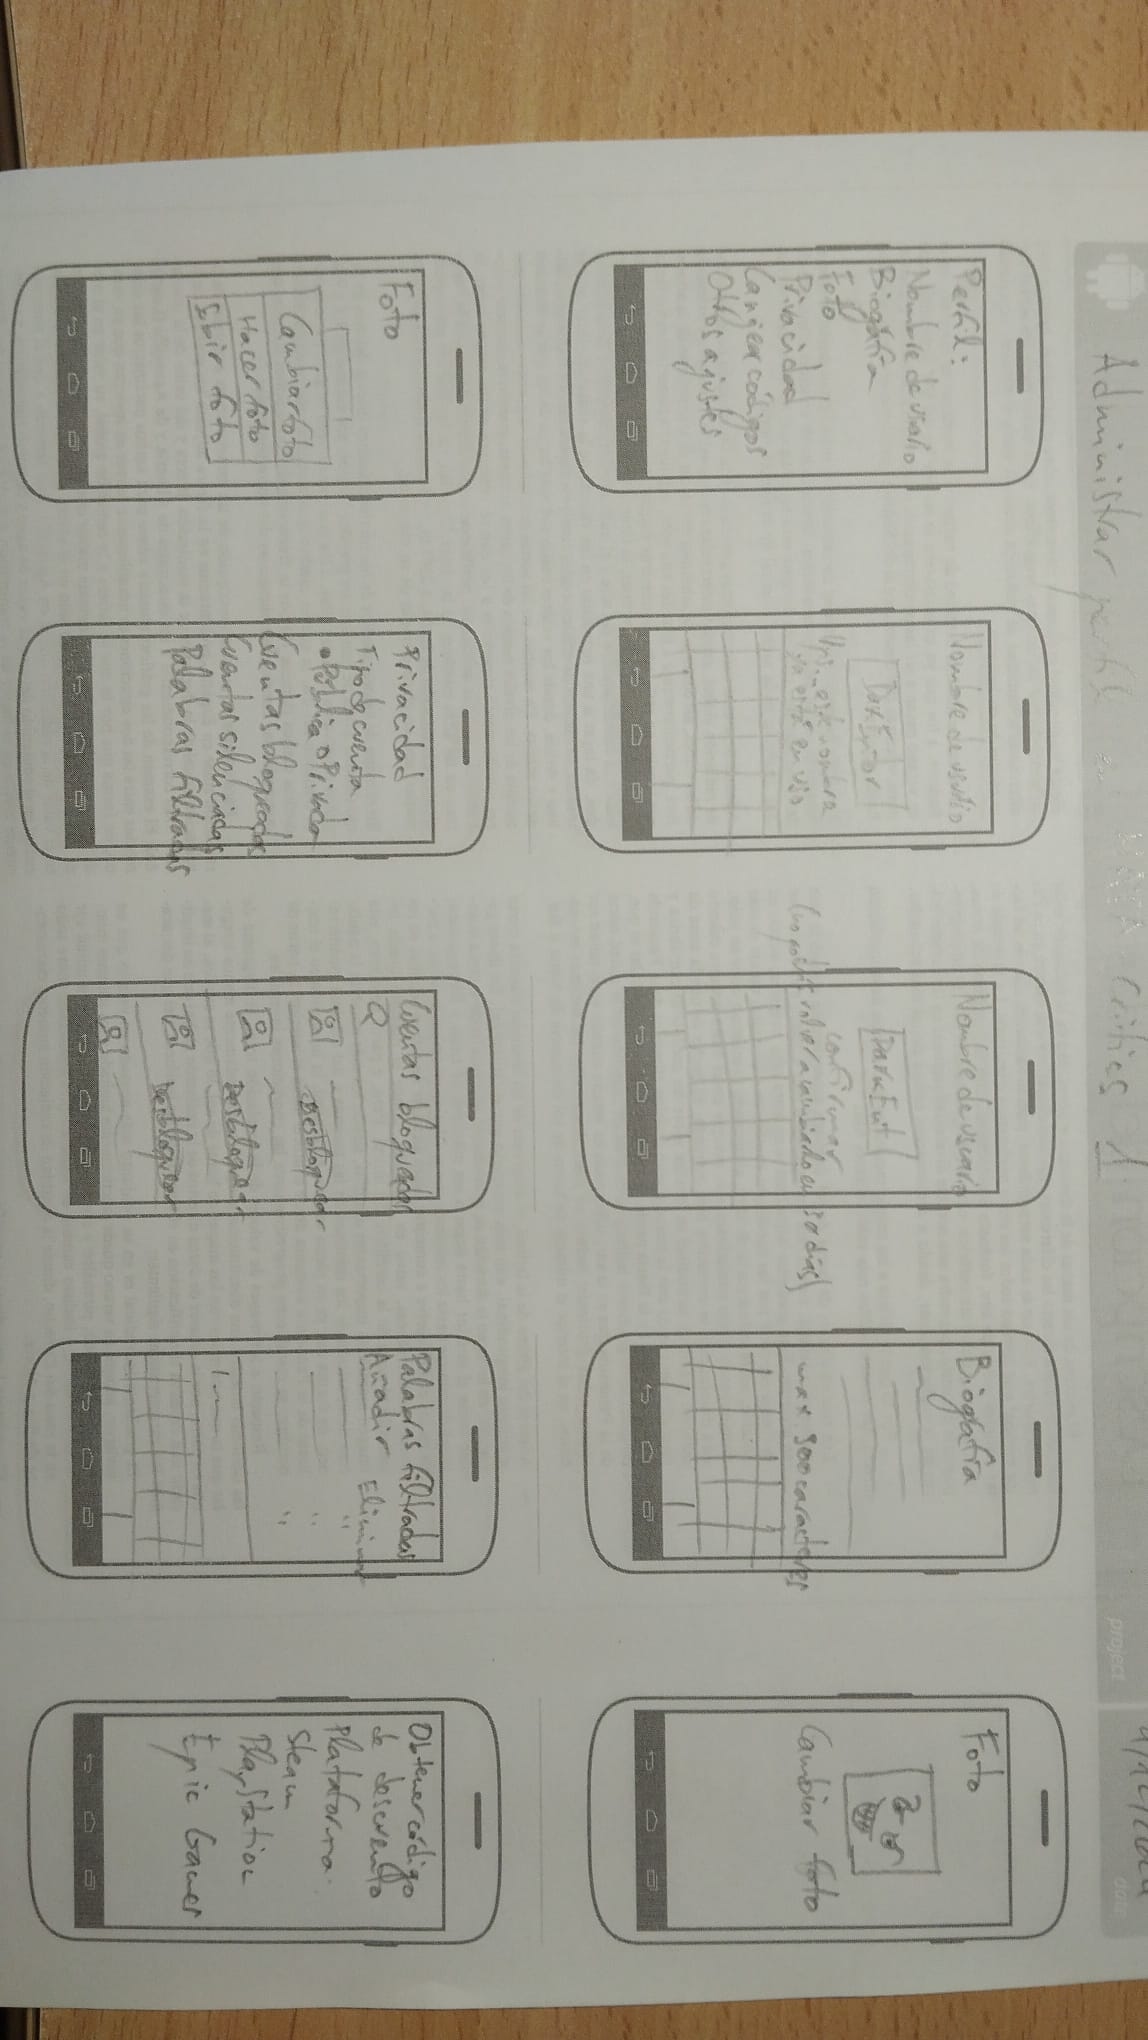 Administrar perfil Critics 1
project
date
Perfil:
Nombre de usuario
Biografía
Foto
Privacidad
Canjear códigos
Otros ajustes
Nombre de usuario
Ups... este nombre
ya está en uso
Nombre de usuario
DarkEnt
confirmar
(no podrás volver a cambiarlo en 30 días)
Biografía
max 300 caracteres
Foto
Cambiar foto
Foto
Cambiar foto
Hacer foto
Subir foto
Privacidad
Tipo de cuenta
Pública Privada
Cuentas bloqueadas
Cuentas silenciadas
Palabras filtradas
Cuentas bloqueadas
Desbloquear
Desbloquear
Desbloquear
Palabras filtradas
Añadir Eliminar
"
"
"
Obtener código
de descuento
Plataforma
Steam
PlayStation
Epic Games